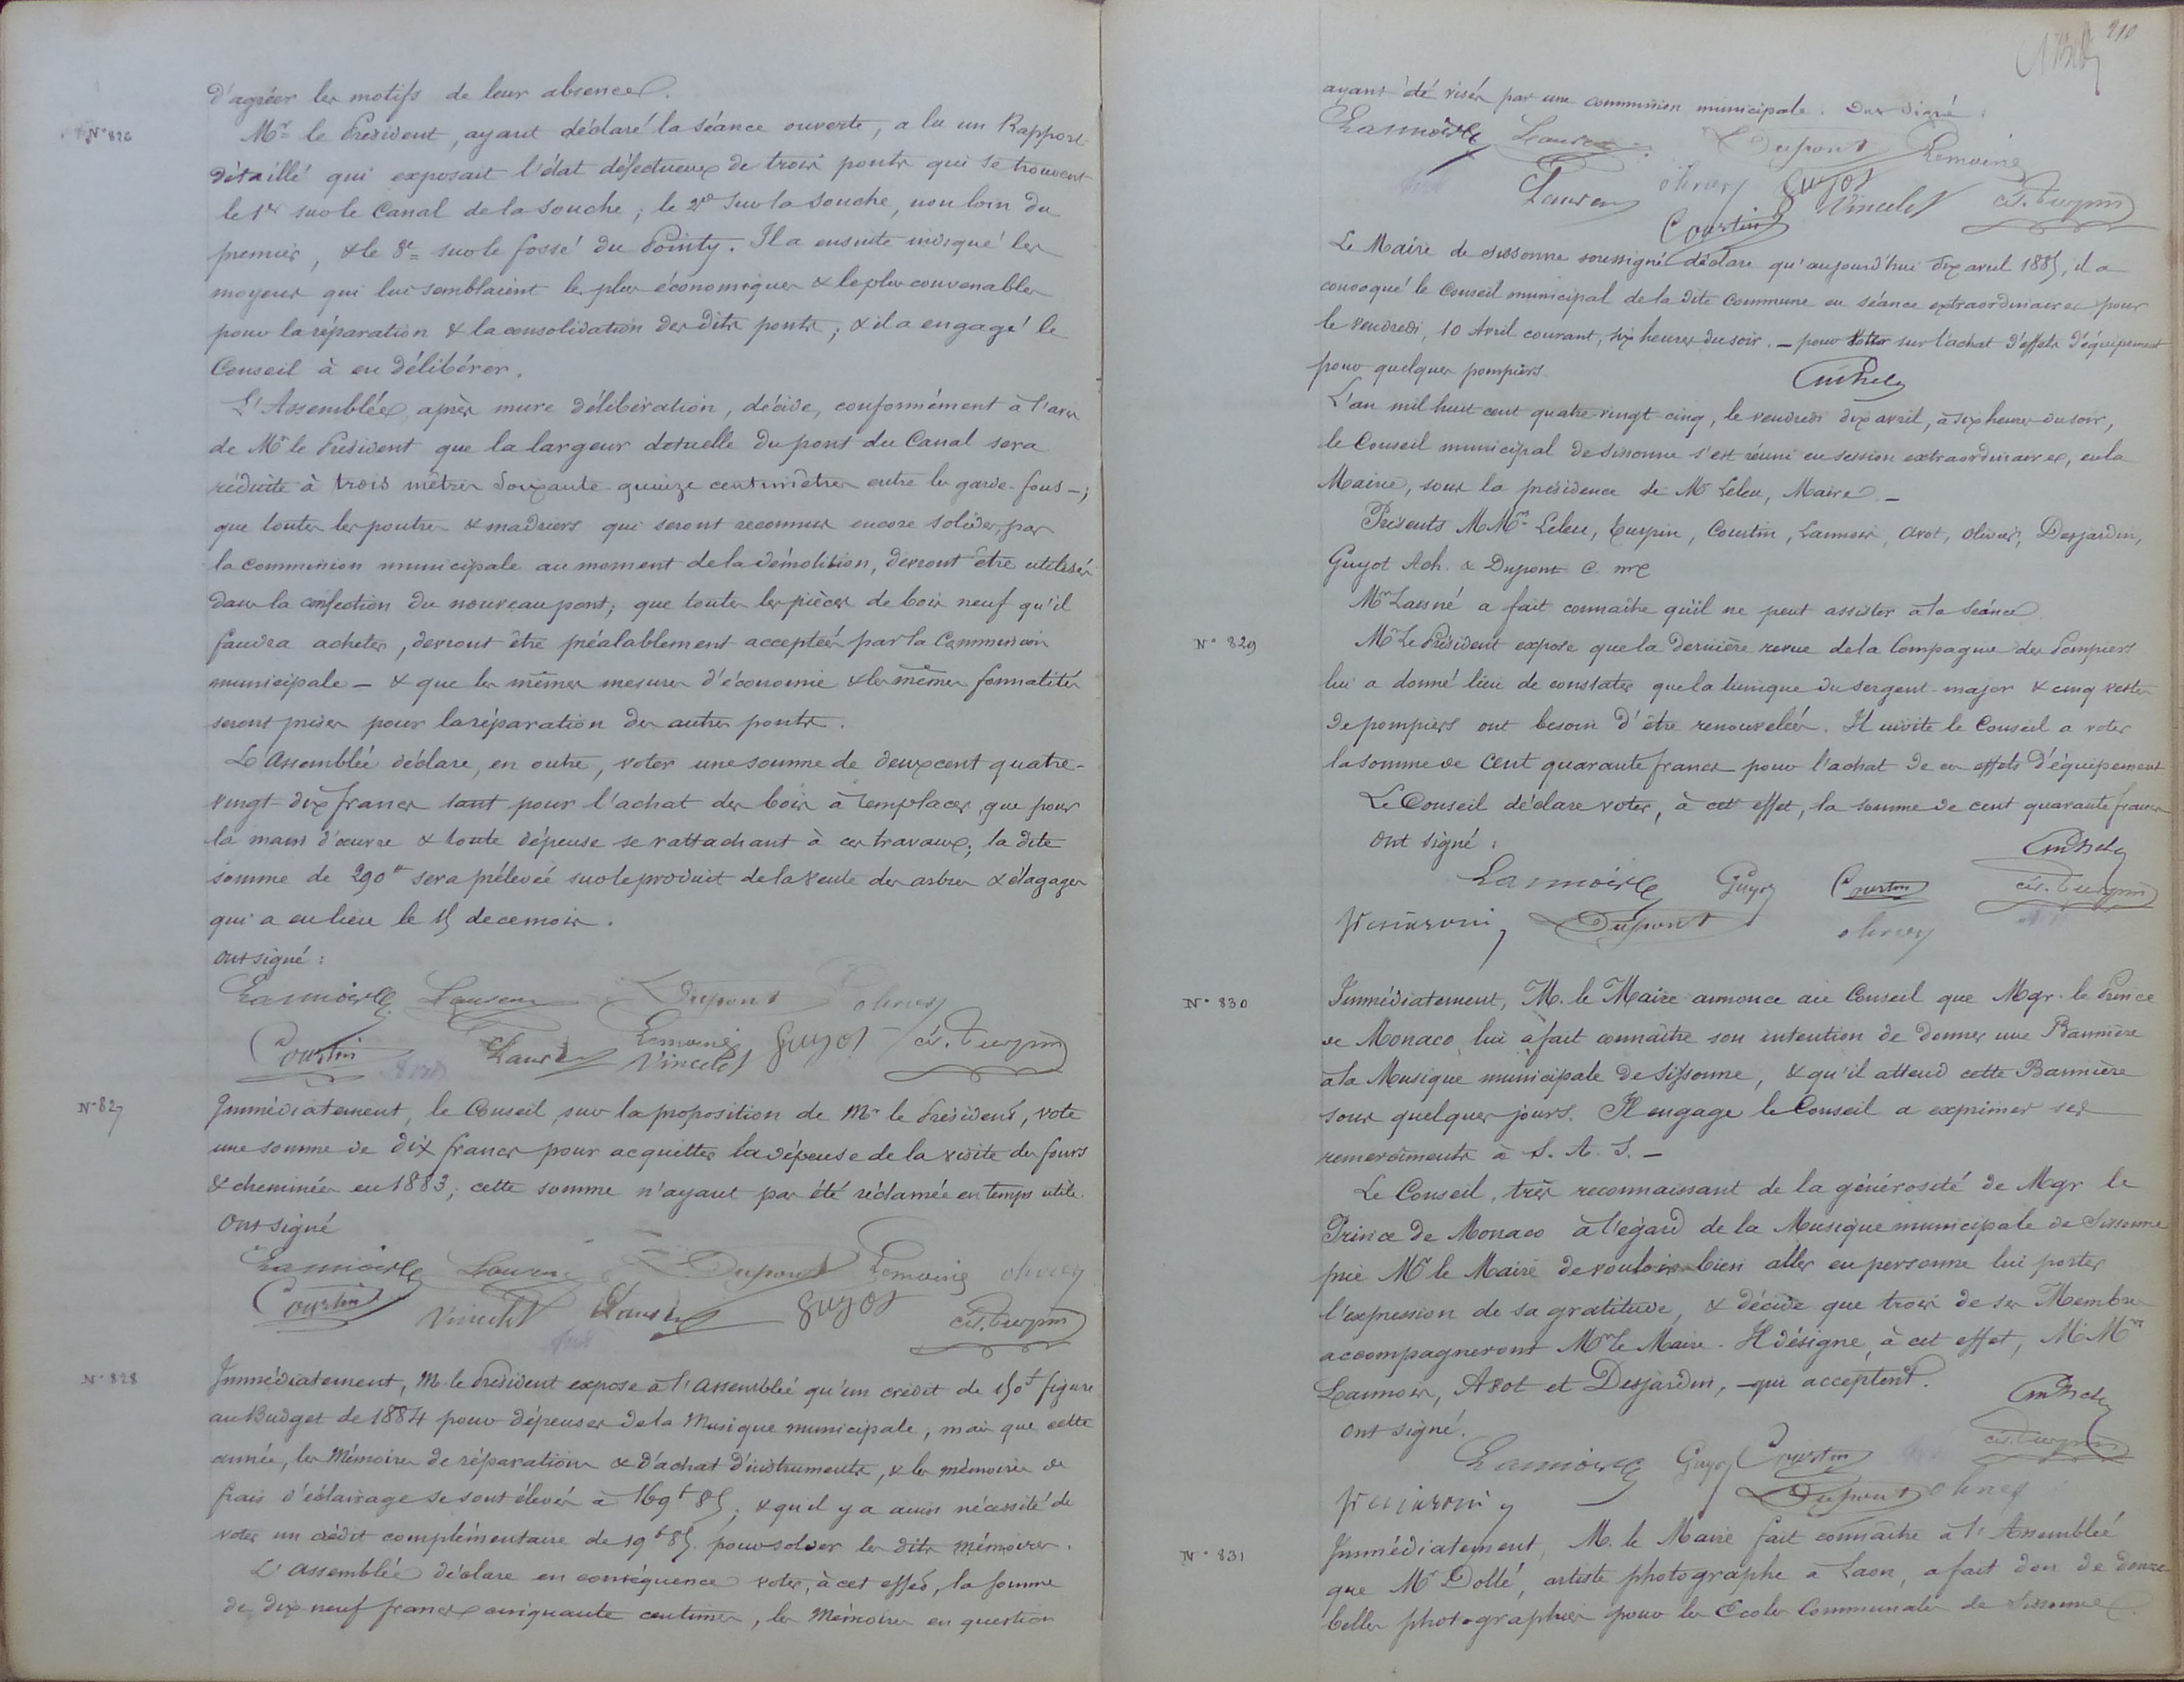 d'agréer les motifs de leur absence.
N° 826
Mr le Président, ayant déclaré la séance ouverte, a lu un Rapport
détaillé qui exposait l'état défectueux de trois ponts qui se trouvent
le 1er sur le Canal de la Souche; le 2e sur la Souche, non loin du
premier, & le 3e sur le fossé du Pointy. Il a ensuite indiqué les
moyens qui lui semblaient les plus économiques & les plus convenables
pour la réparation & la consolidation des dits ponts; & il a engagé le
Conseil à en délibérer.
L'Assemblée, après mure délibération, décide, conformément à l'avis
de Mr le Président que la largeur actuelle du pont du Canal sera
réduite à trois mètres soixante-quinze centimètres entre les garde-fous —;
que toutes les poutres & madriers qui seront reconnus encore solides, par
la commission municipale au moment de la démolition, devront être utilisés
dans la confection du nouveau pont; que toutes les pièces de bois neuf qu'il
faudra acheter, devront être préalablement acceptées par la Commission
municipale — & que les mêmes mesures d'économie & les mêmes formalités
seront prises pour la réparation des autres ponts.
L'Assemblée déclare, en outre, voter une somme de deux cent quatre-
vingt-dix francs tant pour l'achat des bois à remplacer, que pour
la main d'œuvre & toute dépense se rattachant à ces travaux; la dite
somme de 290 fr sera prélevée sur le produit de la vente des arbres & élagages
qui a eu lieu le 15 décembre.
ont signé:
Lannois Dupont olivier
Courtin Lemoine Vincelet Guyot cés. Turpin
N° 827
Immédiatement, le Conseil, sur la proposition de Mr le Président, vote
une somme de dix francs pour acquitter la dépense de la visite des fours
& cheminées en 1883; cette somme n'ayant pas été réclamée en temps utile.
Ont signé
Lannois Dupont Lemoine olivier
Courtin Vincelet Guyot cés. Turpin
N° 828
Immédiatement, M. le Président expose à l'Assemblée qu'un crédit de 150 f figure
au Budget de 1884 pour dépenses de la Musique municipale, mais que cette
année, les Mémoires de réparations & d'achat d'instruments, & les mémoires de
frais d'éclairage se sont élevés à 169 f 85; & qu'il y a ainsi nécessité de
voter un crédit complémentaire de 19 f 85 pour solder les dits mémoires.
L'Assemblée déclare en conséquence voter, à cet effet, la somme
de dix neuf francs cinquante centimes, les Mémoires en question
210
ayant été visés par une commission municipale. Ont signé:
Lannois Dupont Lemoine
olivier Guyot Vincelet cés. Turpin
Courtin
Le Maire de Sissonne soussigné déclare qu'aujourd'hui six avril 1885, il a
convoqué le Conseil municipal de la dite Commune en séance extraordinaire pour
le vendredi, 10 Avril courant, six heures du soir. — pour voter sur l'achat d'effets d'équipement
pour quelques pompiers.
L'an mil huit cent quatre-vingt-cinq, le vendredi dix avril, à six heures du soir,
le Conseil municipal de Sissonne s'est réuni en session extraordinaire, en la
Mairie, sous la présidence de Mr Leleu, Maire. —
Présents M.Mrs Leleu, Turpin, Courtin, Lannois, Avot, Olivier, Desjardin,
Guyot Ach. & Dupont
Mr Laisné a fait connaître qu'il ne peut assister à la séance.
N° 829
Mr Le Président expose que la dernière revue de la Compagnie des Pompiers
lui a donné lieu de constater que la tunique du sergent-major & cinq vestes
de pompiers ont besoin d'être renouvelées. Il invite le Conseil à voter
la somme de cent quarante francs pour l'achat de ces effets d'équipement
Le Conseil déclare voter, à cet effet, la somme de cent quarante francs
ont signé:
Lannois Guyot Courtin cés. Turpin
Desjardin Dupont olivier
N° 830
Immédiatement, M. le Maire annonce au Conseil que Mgr. le Prince
de Monaco lui a fait connaître son intention de donner une Bannière
à la Musique municipale de Sissonne, & qu'il attend cette Bannière
sous quelques jours. Il engage le Conseil a exprimer ses
remerciments à S. A. S. —
Le Conseil, très reconnaissant de la générosité de Mgr le
Prince de Monaco à l'égard de la Musique municipale de Sissonne
prie Mr le Maire de vouloir bien aller en personne lui porter
l'expression de sa gratitude, & décide que trois de ses Membres
accompagneront Mr Le Maire. Il désigne, à cet effet, M.Mrs
Lannois, Avot et Desjardin, — qui acceptent.
ont signé.
Lannois Guyot Courtin cés. Turpin
Desjardin Dupont olivier
N° 831
Immédiatement, M. le Maire fait connaître à l'Assemblée
que Mr Dollé, artiste photographe à Laon, a fait don de douze
belles photographies pour les Ecoles Communales de Sissonne.